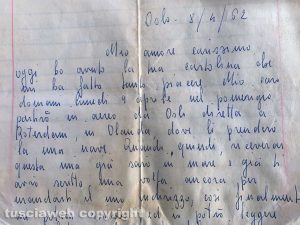 Oslo. 8/4/62
Mio amore carissimo
oggi ho avuto la tua cartolina che
mi ha fatto tanto piacere Mio caro
domani lunedi 9 aprile nel pomeriggio
partirò in aereo da Oslo diretta a
Roterdam in Olanda dove li prenderò
la mia nave quando, quindi, riceverai
questa mia già sarò in mare e già ti
avrò scritto una volta ancora per
mandarti il mio indirizzo, così finalmente
in potrò leggere
tusciaweb copyright tusciaweb
tusciaweb.eu